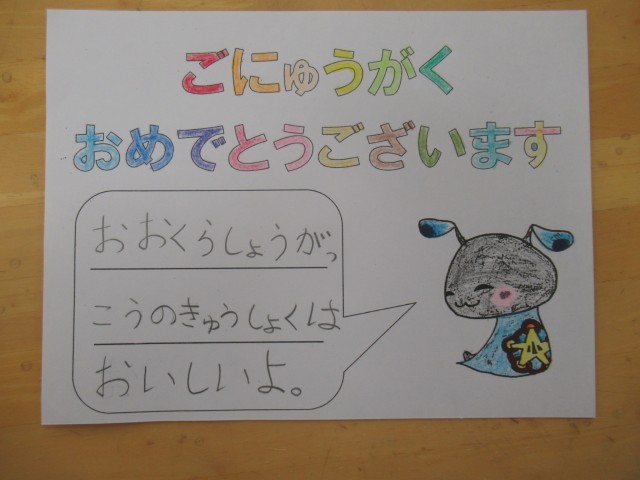 ごにゅうがく
おめでとうございます
おおくらしょうがっ
こうのきゅうしょくは
おいしいよ。
小